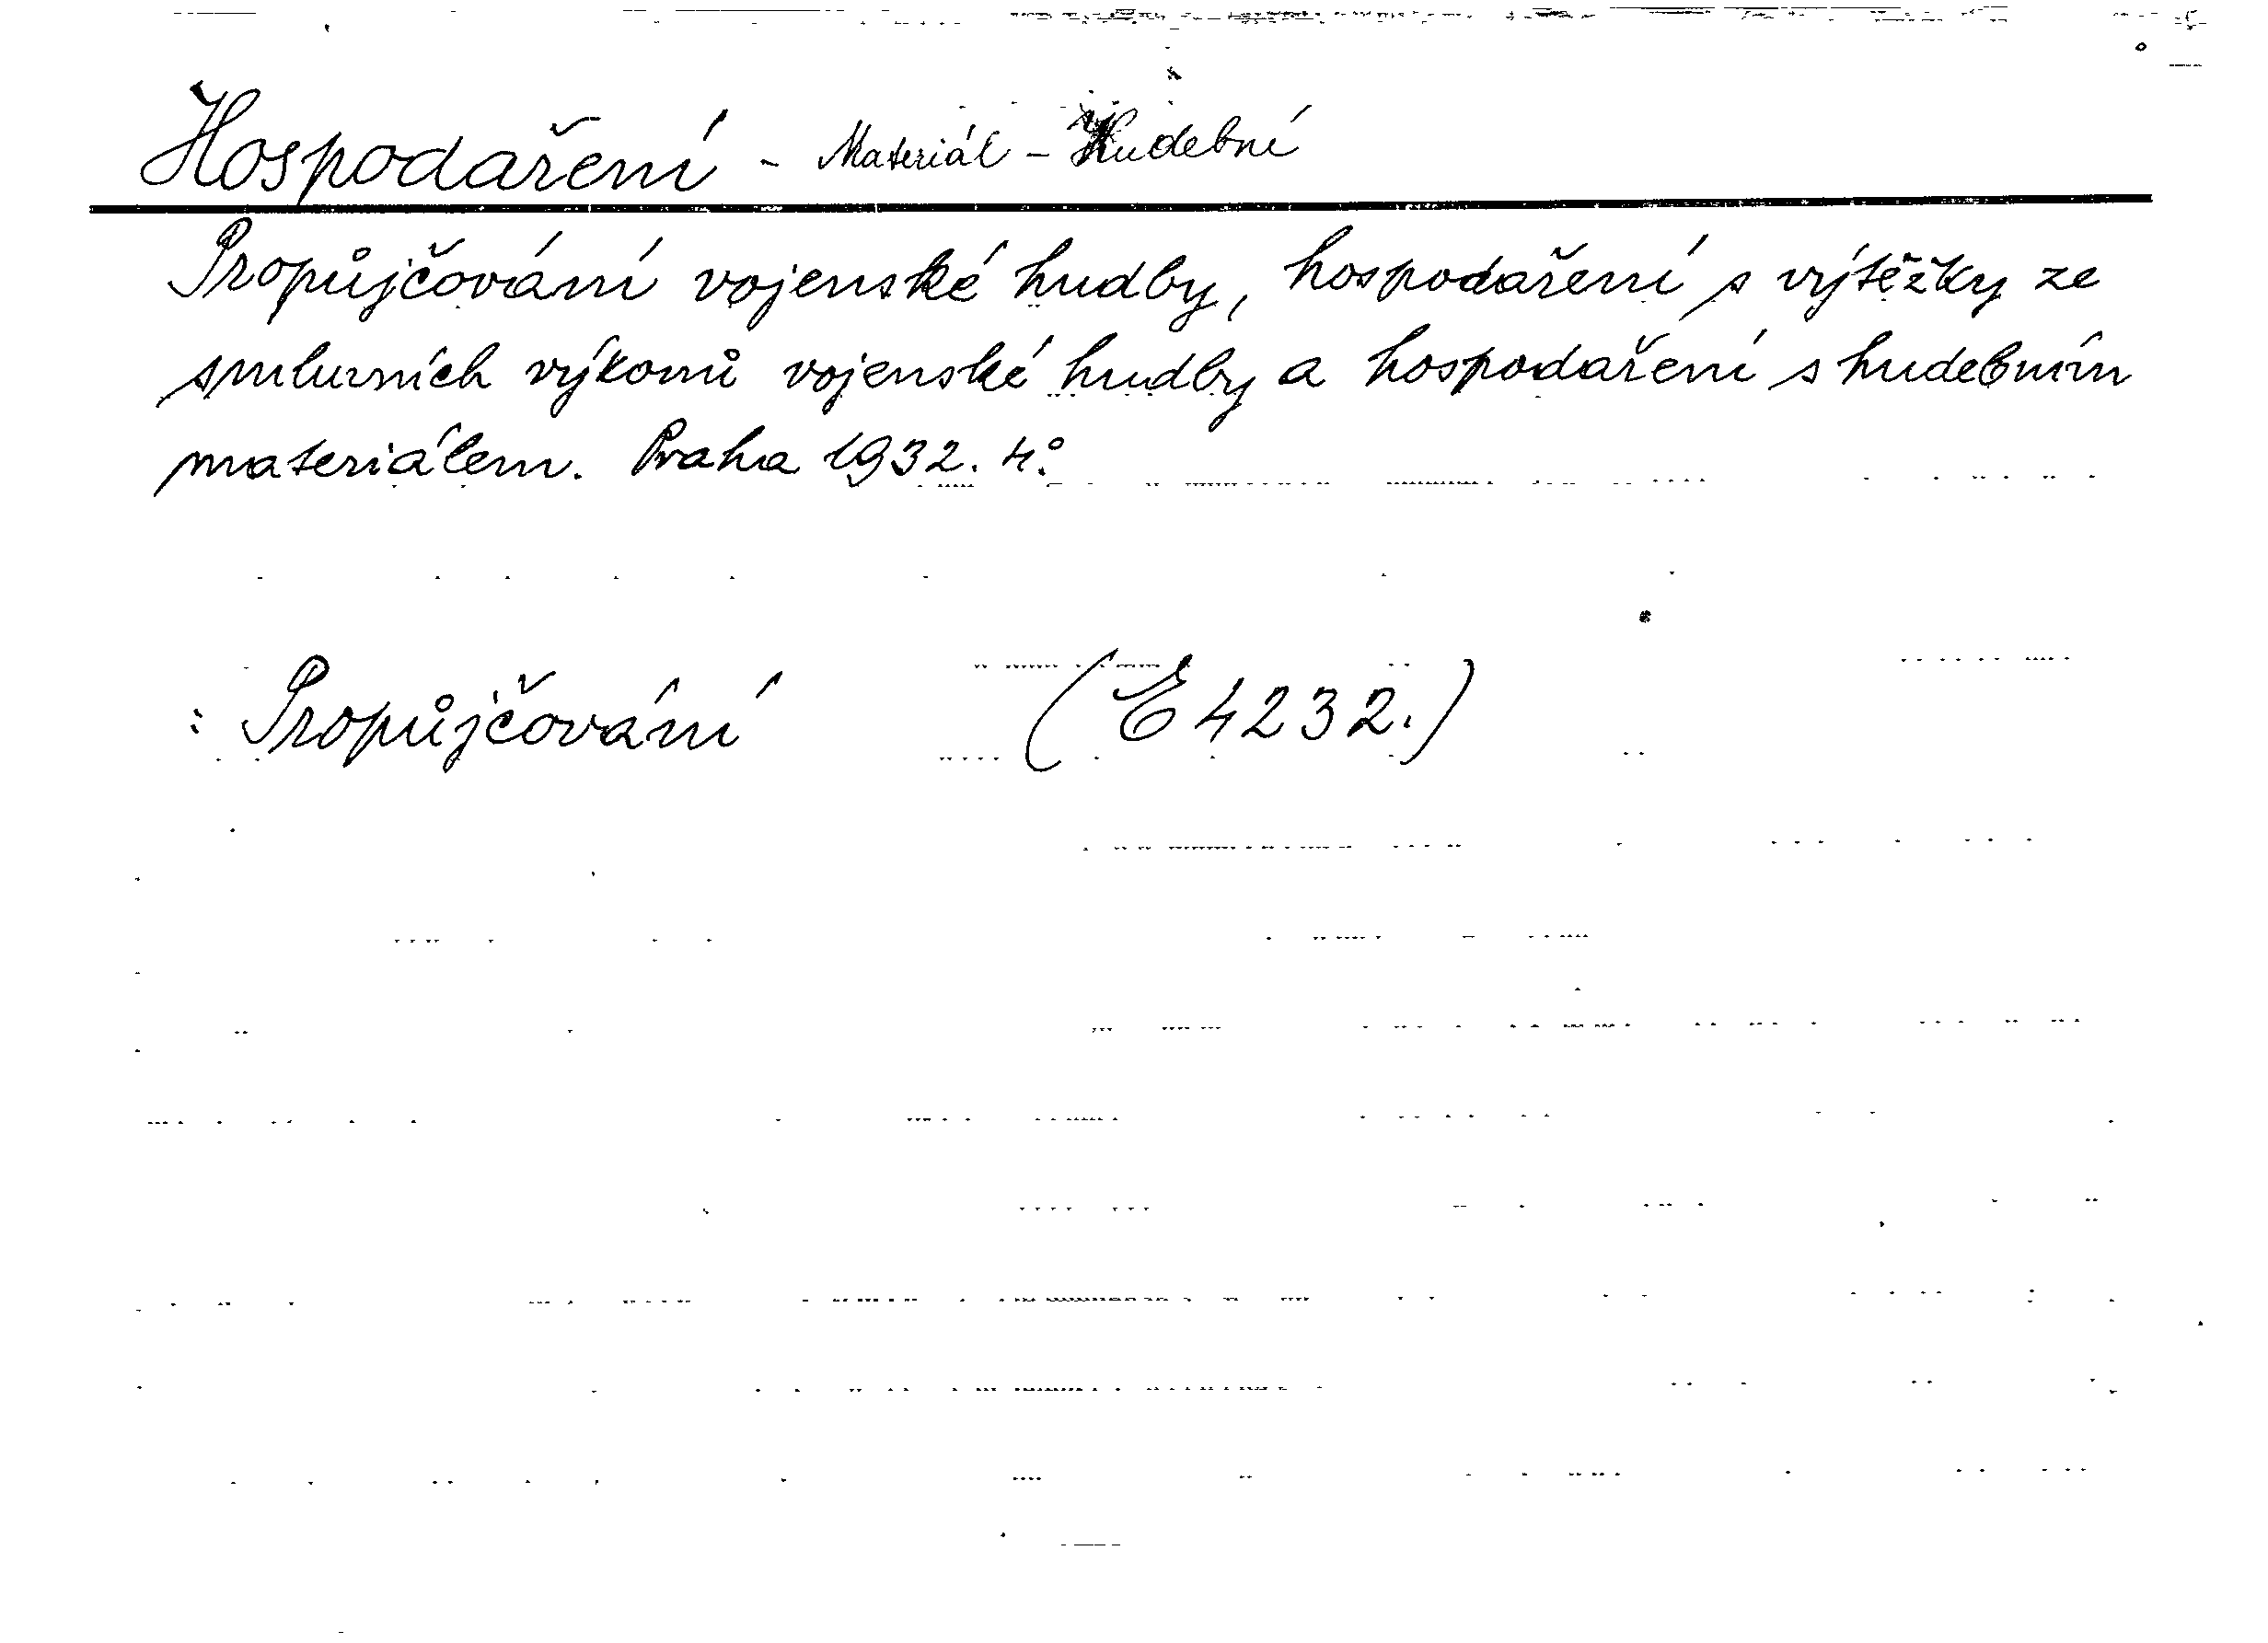 Hospodaření - Materiál - Hudební
Propůjčování vojenské hudby, hospodaření s výtěžky ze
smluvních výkonů vojenské hudby a hospodaření s hudebním
materiálem. Praha 1932. 4°.
: Propůjčování (E 4232.)